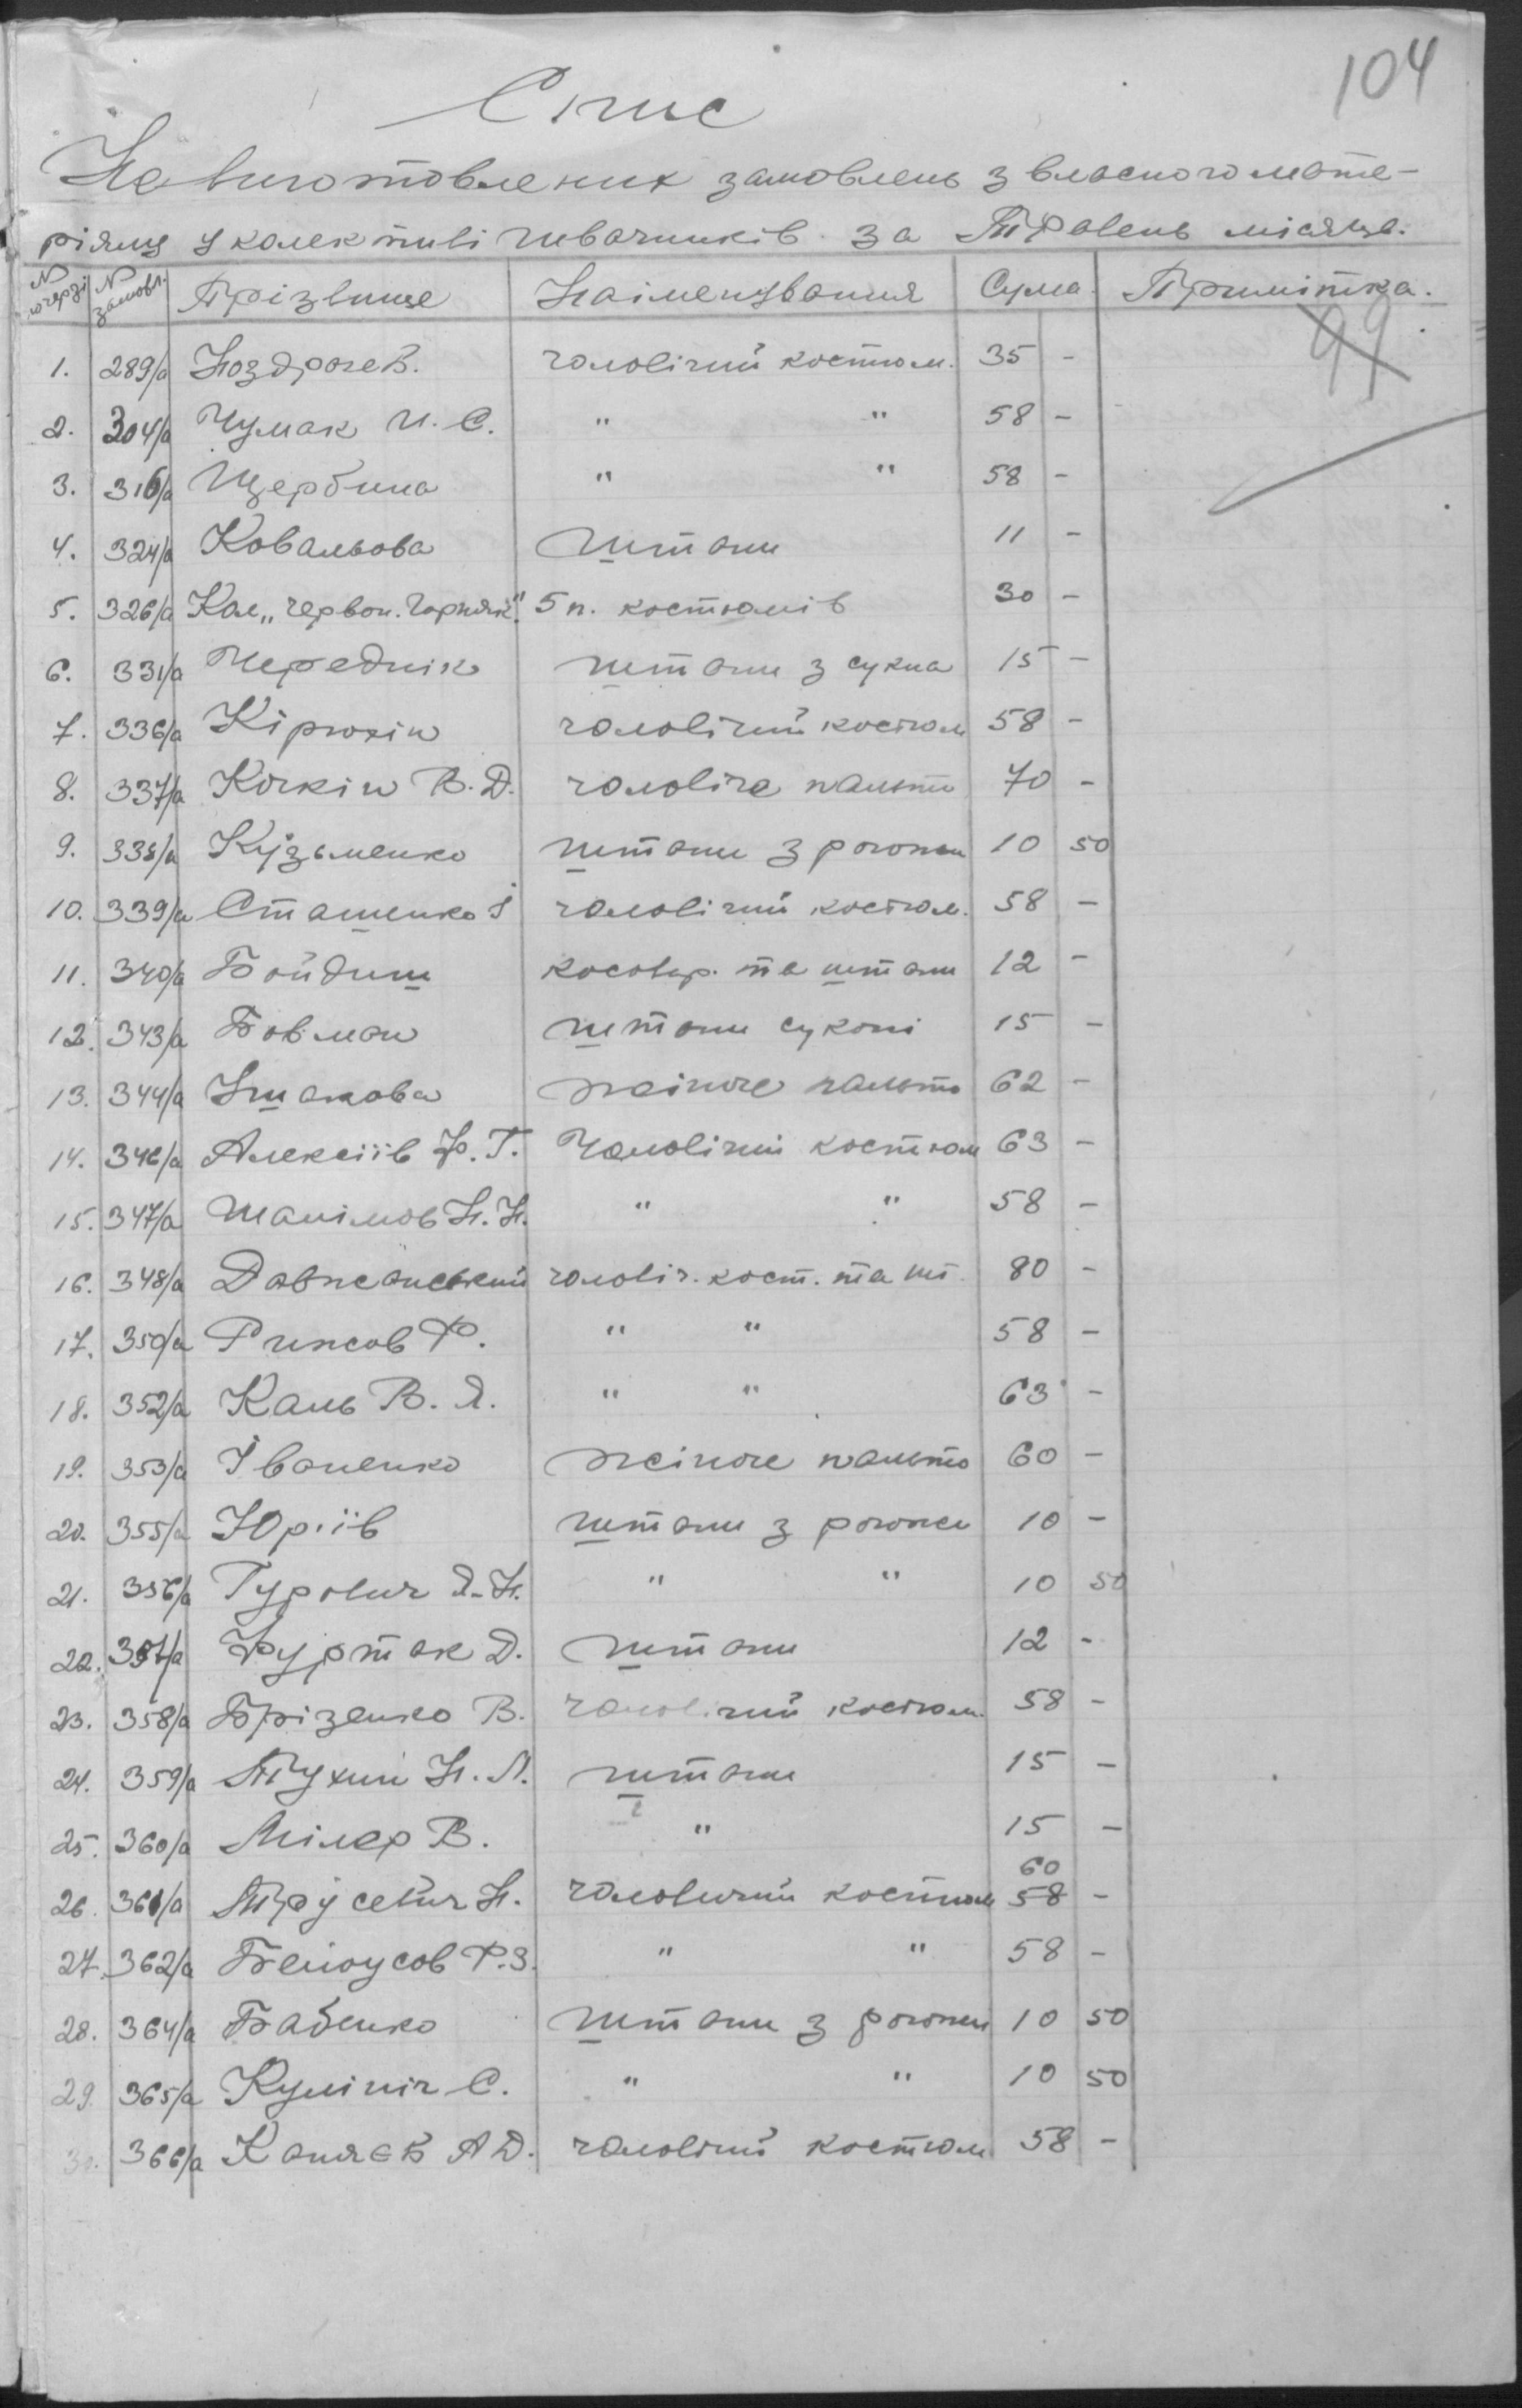 104
Спис
Невиготовлених замовлень з власного мате-
ріялу у колективі швачників за Травень місяць.
№ по черзі № замовл. Прізвище Найменування Сума Примітка.
99
1. 289/а Ноздрачев. чоловічий костюм. 35 -
2. 304/а Чумак И. С. " " 58 -
3. 316/а Щербина " " 58 -
4. 324/а Ковальова штани 11 -
5. 326/а Кол „Червон. Горняк". 5 п. костюмів 30 -
6. 331/а Чередник штани з сукна 15 -
7. 336/а Кірюхін чоловічий костюм 58 -
8. 337/а Кочкін В. Д. чоловіче пальто 70 -
9. 338/а Кузьменко штани з рогожи 10 50
10. 339/а Сташенко І чоловічий костюм. 58 -
11. 340/а Бойдиш косовор. та штани 12 -
12. 343/а Бовман штани сукони 15 -
13. 344/а Ушакова жіноче пальто 62 -
14. 346/а Алексіїв Ф. Г. Чоловічий костюм 63 -
15. 347/а Шалімов Н. Н. " " 58 -
16. 348/а Давжанський чоловіч. кост. та шт. 80 -
17. 350/а Рижов Ф. " " 58 -
18. 352/а Каль В. Я. " " 63 -
19. 353/а Іваненко жіноче пальто 60 -
20. 355/а Юріїв штани з рогожи 10 -
21. 356/а Гурович Я. Н. " " 10 50
22. 357/а Фуртак Д. штани 12 -
23. 358/а Брізенко В. чоловічий костюм. 58 -
24. 359/а Тухий Н. Л. штани 15 -
25. 360/а Мілер В. " 15 -
60
26. 361/а Трусевич Н. чоловичий костюм 58 -
27. 362/а Белоусов Ф. З. " " 58 -
28. 364/а Бабенко штани з рогожи 10 50
29. 365/а Кулініч С. " " 10 50
30. 366/а Каняєв А Д. чоловічий костюм 58 -